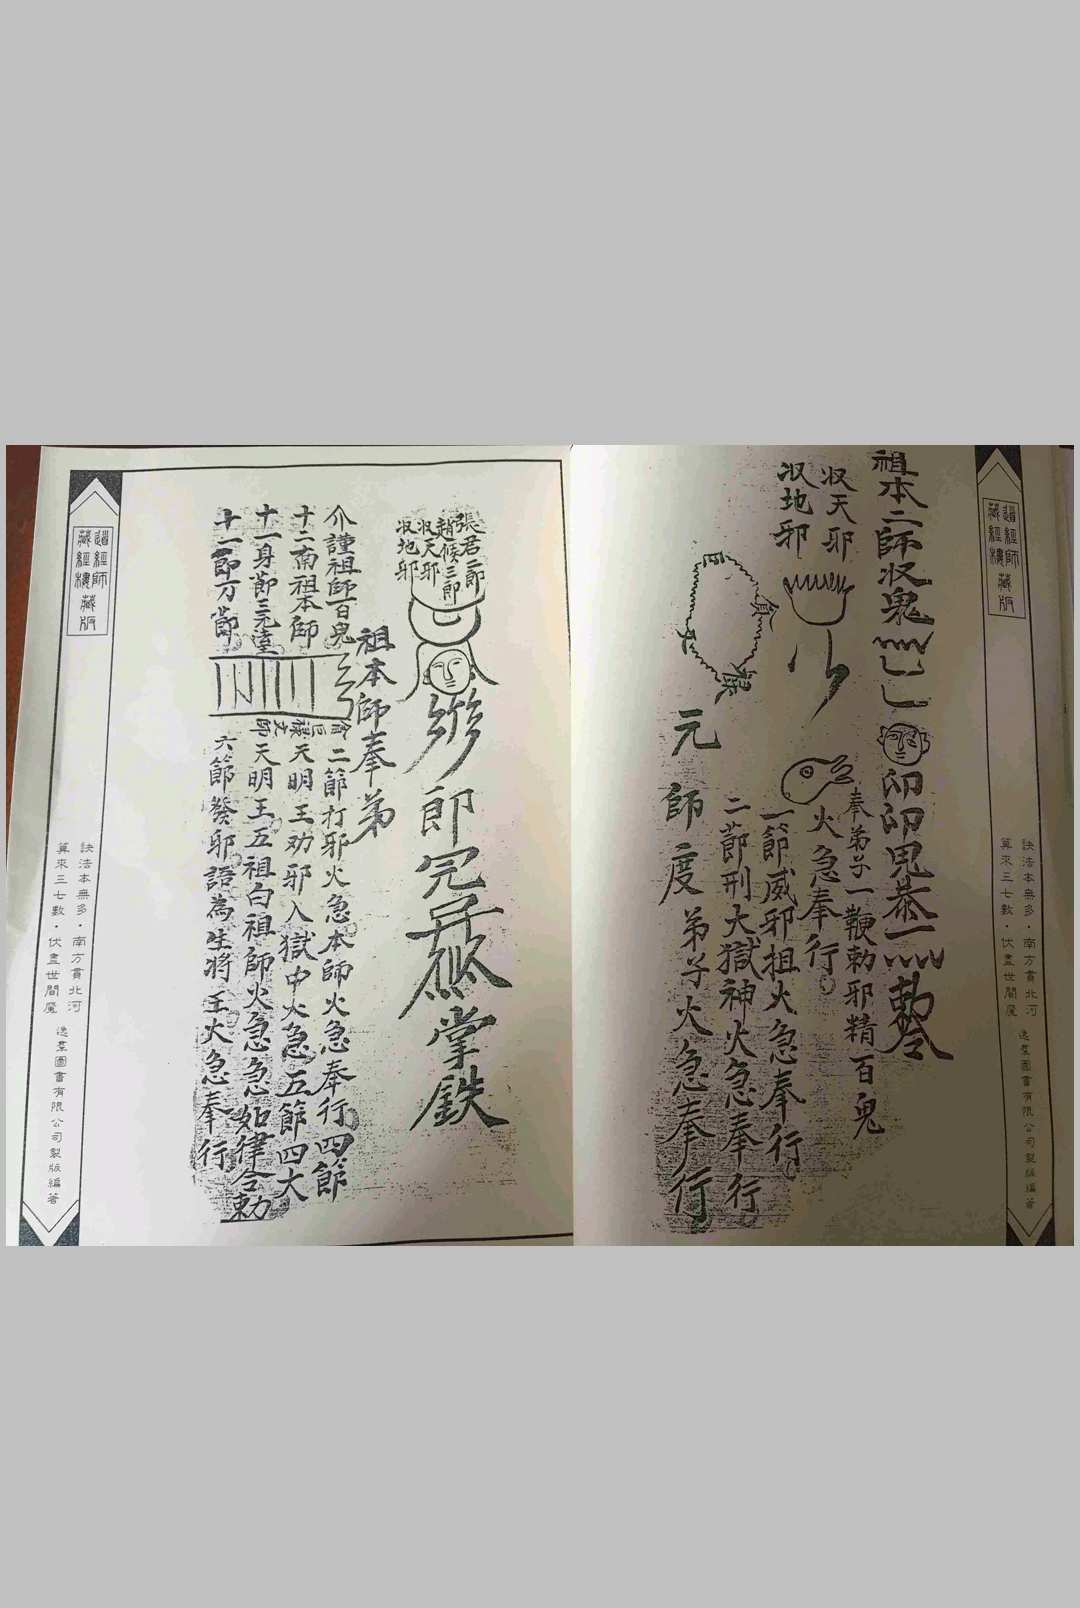 祖本二師収鬼
印印鬼
勅令
収天邪
収地邪
奉弟子一鞭勅邪精百鬼
火急奉行
一節威邪祖火急奉行
二節刑大獄神火急奉行
元師度弟子火急奉行
道經師
藏經樓藏版
訣法本無多·南方貫北河
算來三七數·伏盡世間魔
逸群圖書有限公司製版編著
張君二郎
趙候三郎
収天邪
収地邪
掌鉄
祖本師奉弟
介謹祖師百鬼
二節打邪火急本師火急奉行四節
十二南祖本師
天明王劝邪入獄中火急五節四大
十一身節三元達
天明王五祖白祖師火急急如律令勅
十一節方節
六節發邪語為生將王火急奉行
道經師
藏經樓藏版
訣法本無多·南方貫北河
算來三七數·伏盡世間魔
逸群圖書有限公司製版編著